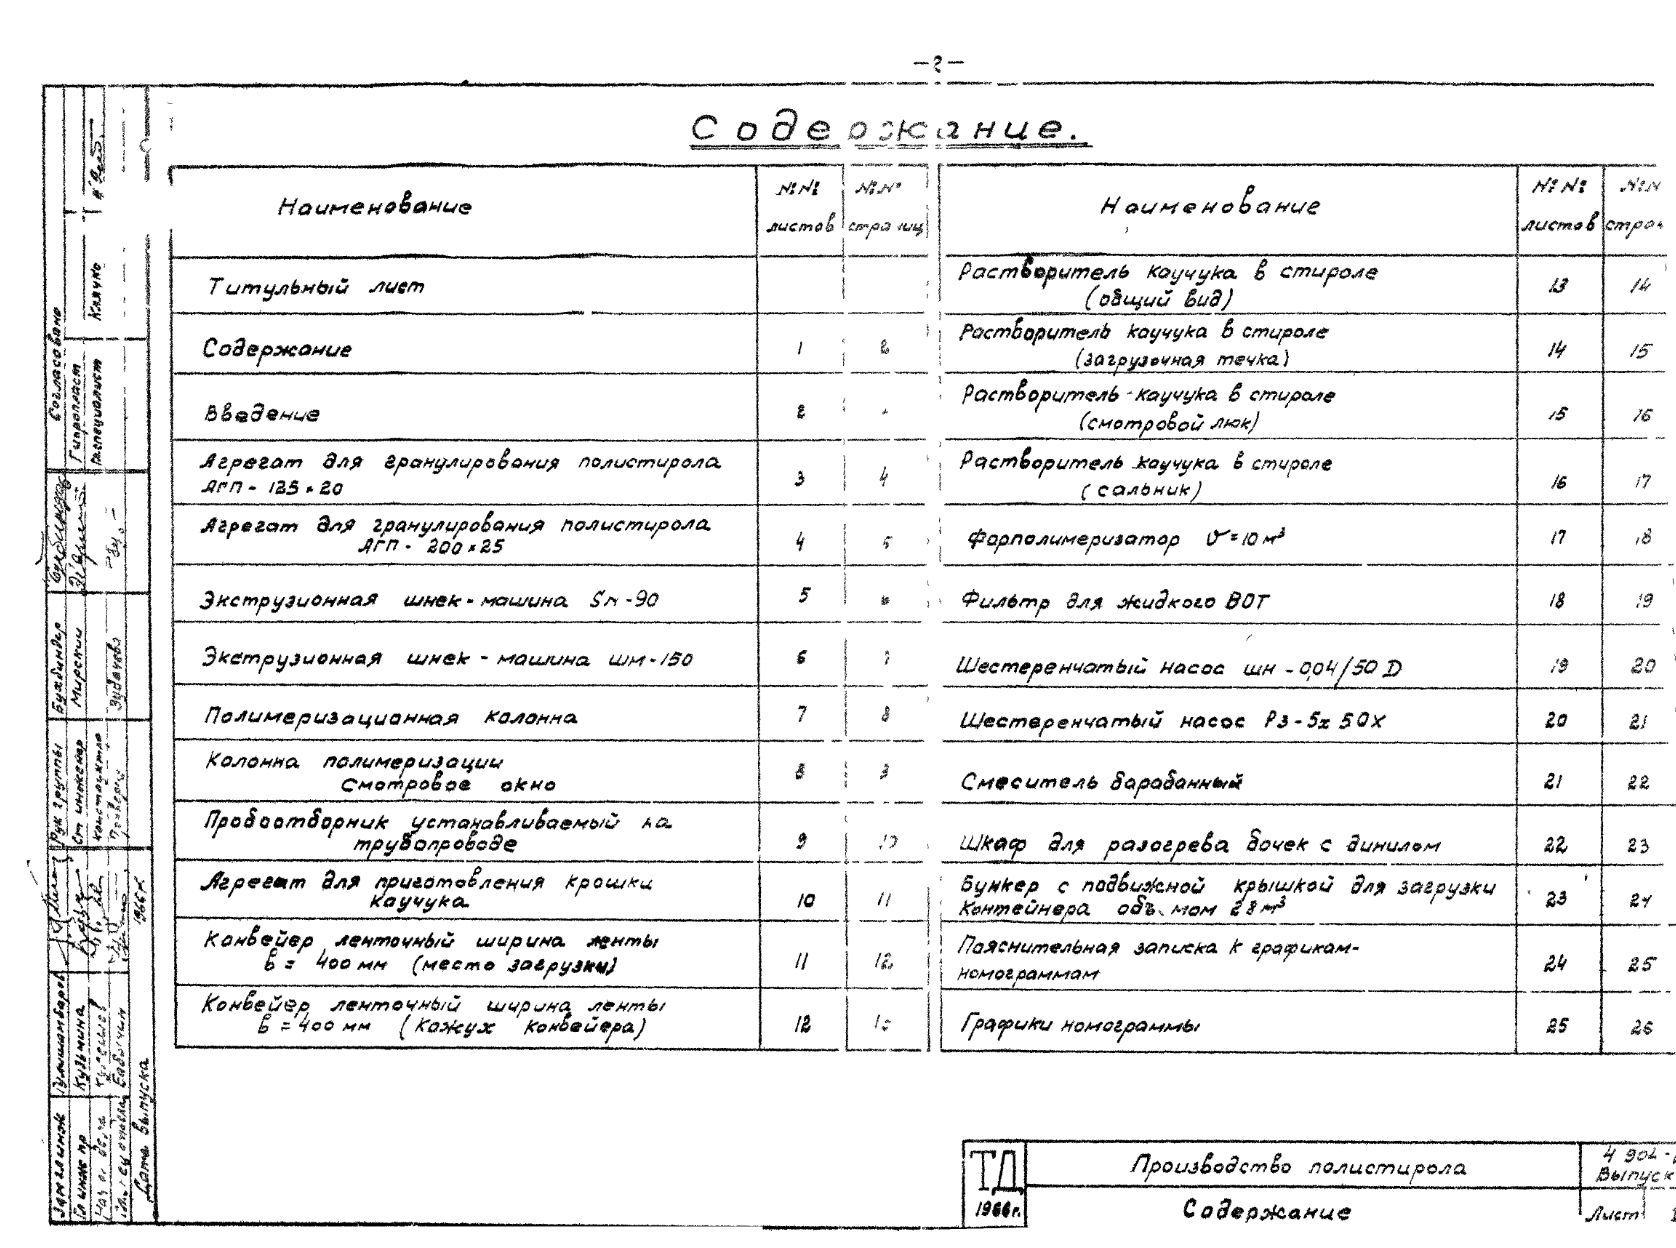 —2—
Содержание.
Наименование №№ листов №№ страниц
Титульный лист
Содержание 1 2
Введение 2
Агрегат для гранулирования полистирола
АГП - 125 × 20 3 4
Агрегат для гранулирования полистирола
АГП - 200 × 25 4 5
Экструзионная шнек - машина Sn - 90 5
Экструзионная шнек - машина ШМ - 150 6 7
Полимеризационная колонна 7 8
Колонна полимеризации
Смотровое окно 8 9
Пробоотборник устанавливаемый на
трубопроводе 9 10
Агрегат для приготовления крошки
каучука 10 11
Конвейер ленточный ширина ленты
в = 400 мм (место загрузки) 11 12
Конвейер ленточный ширина ленты
в = 400 мм (кожух конвейера) 12
Наименование №№ листов №№
Растворитель каучука в стироле
(общий вид) 13 14
Растворитель каучука в стироле
(загрузочная течка) 14 15
Растворитель каучука в стироле
(смотровой люк) 15 16
Растворитель каучука в стироле
(сальник) 16 17
Форполимеризатор V = 10 м³ 17 18
Фильтр для жидкого ВОТ 18 19
Шестеренчатый насос ШН - 0,04/50 D 19 20
Шестеренчатый насос РЗ - 5х 50Х 20 21
Смеситель барабанный 21 22
Шкаф для разогрева бочек с динилом 22 23
Бункер с подвижной крышкой для загрузки
контейнера 23 24
Пояснительная записка к графикам-
номограммам 24 25
Графики номограммы 25 26
Согласовано
Гипропласт
Гл. специалист Клячко
Рук группы Бухбиндер
Ст инженер Мирский
Кузьмина
Дата выпуска 1966г
ТД
1966г.
Производство полистирола
Выпуск
Содержание
Лист